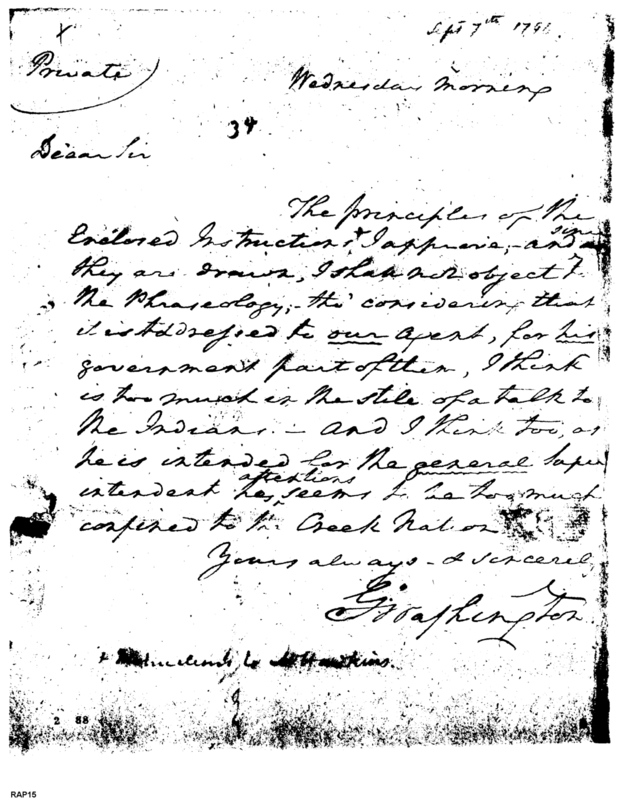 Sept 7th 179
x
Private
Wednesday Morning
34
Dear Sir
The principles of the
Enclosed Instructions + I approve, - and since
they are drawn, I shall not object to
the Phraseology; tho' considering that
it is Addressed to our Agent, for his
government part of them, I think
is too much in the stile of a talk to
the Indians. - And I think too, as
he is intended for the general Super
intendent his attentions seems to be too much
confined to the Creek Nation
Yours always - & sincerely
G Washington
+ Instructions to Mr Hawkins.
2 88
RAP15